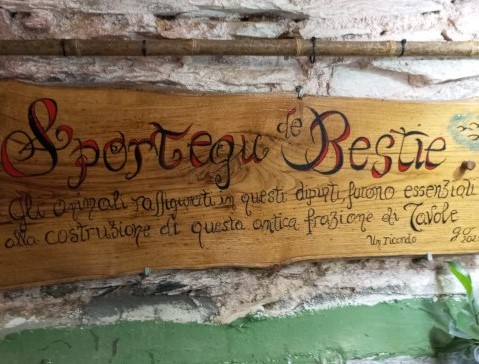 Sportegu de Bestie
gli animali raffigurati in questi dipinti, furono essenziali
alla costruzione di questa antica frazione di Tavole
Un ricordo